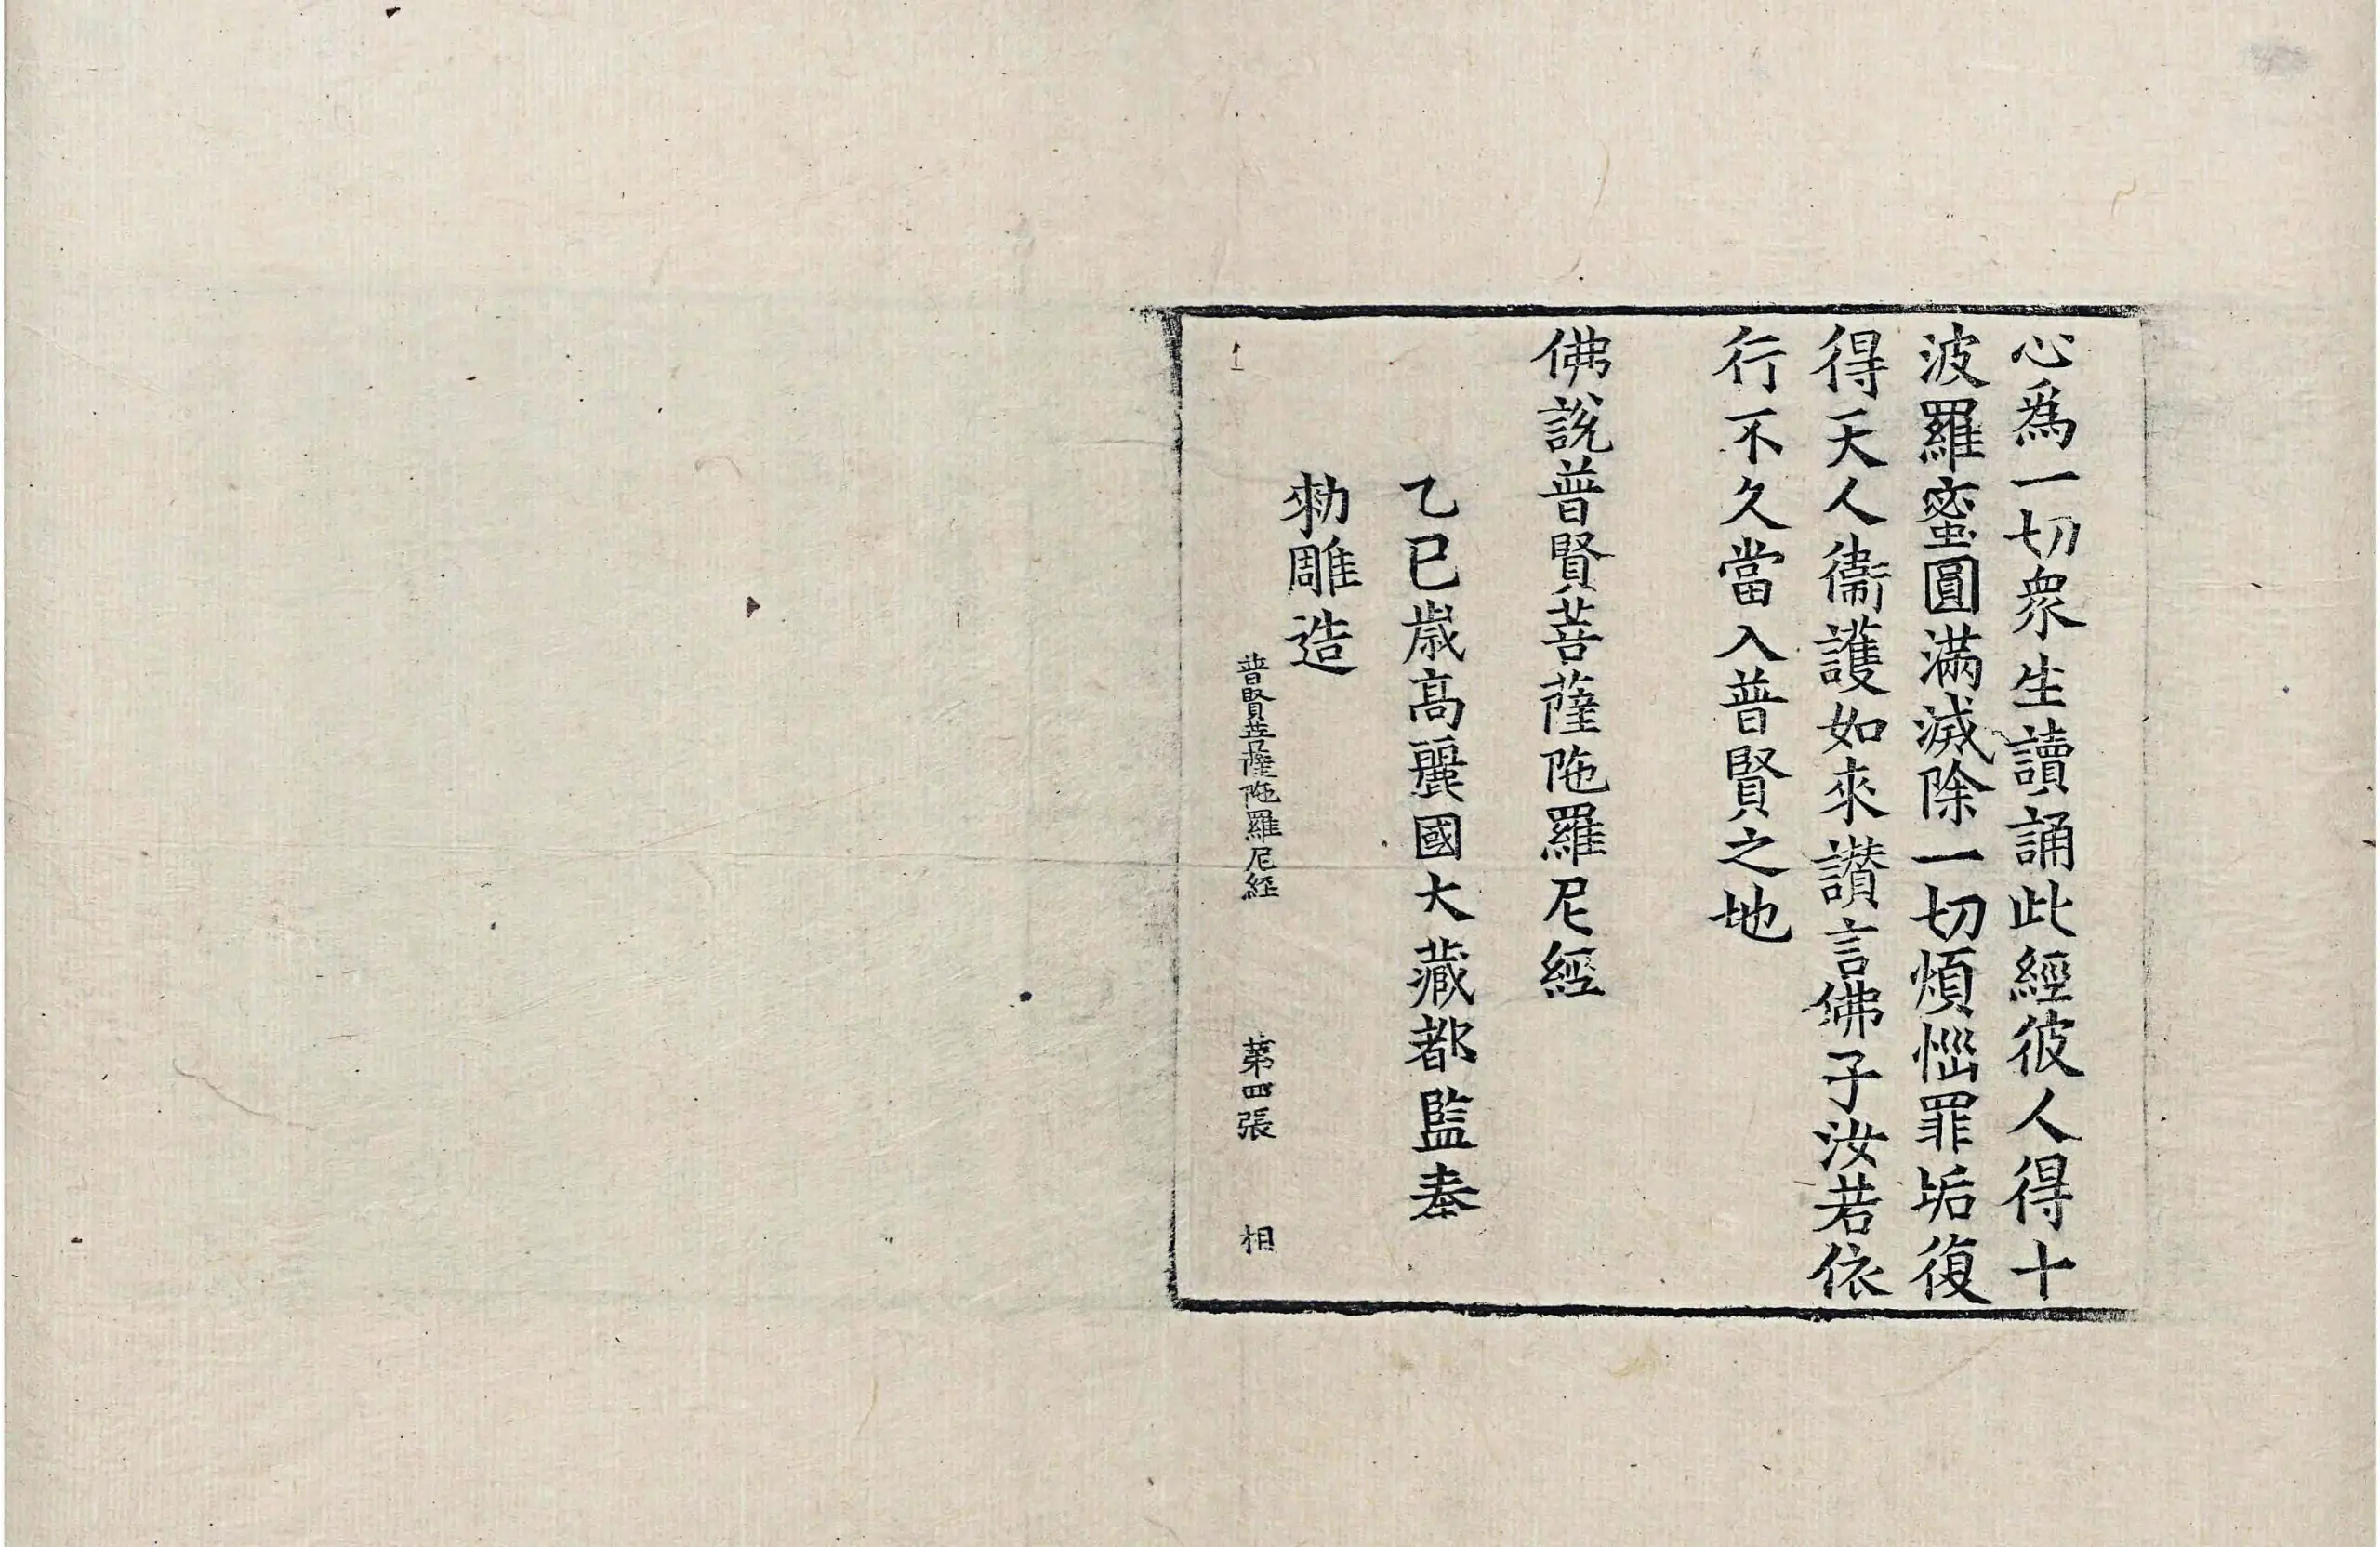 心為一切衆生讀誦此經彼人得十
波羅蜜圓滿滅除一切煩惱罪垢復
得天人衞護如來讃言佛子汝若依
行不久當入普賢之地
佛說普賢菩薩陁羅尼經
乙巳歲高麗國大藏都監奉
勑雕造
普賢菩薩陁羅尼經 第四張 相